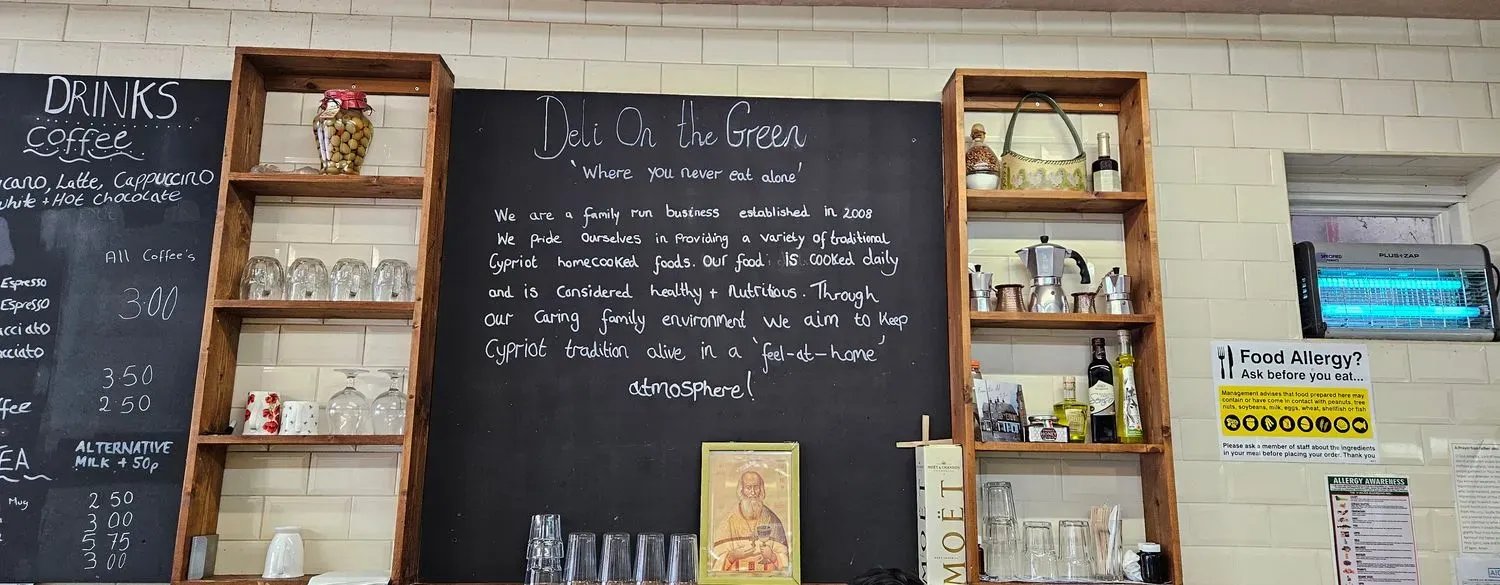 DRINKS
Coffee
Latte, Cappuccino
white + Hot Chocolate
All Coffee's
Espresso
3.00
Espresso
3.50
2.50
ALTERNATIVE
MILK + 50p
Mug
2 50
3 00
5 75
3 00
Deli On the Green
'Where you never eat alone'
We are a family run business established in 2008
We pride ourselves in providing a variety of traditional
Cypriot homecooked foods. Our food IS cooked daily
and is considered healthy + Nutritious. Through
our caring family environment we aim to keep
Cypriot tradition alive in a 'feel-at-home'
atmosphere!
MOËT & CHANDON
MOËT
PLUS ZAP
Food Allergy?
Ask before you eat...
Management advises that food prepared here may
contain or have come in contact with peanuts, tree
nuts, soybeans, milk, eggs, wheat, shellfish or fish
Please ask a member of staff about the ingredients
in your meal before placing your order. Thank you
ALLERGY AWARENESS